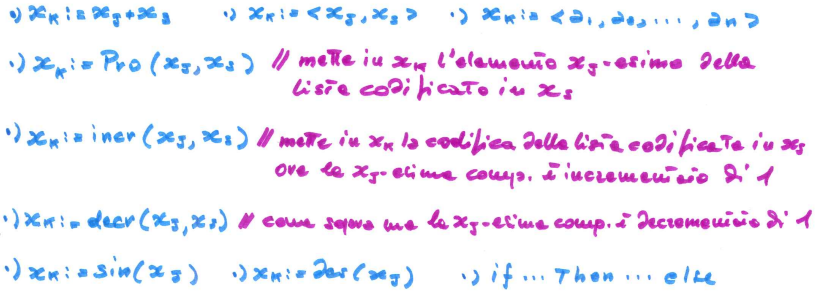 •) xₖ := xⱼ + xₛ •) xₖ := <xⱼ, xₛ> •) xₖ := <a₁, a₂, ..., aₙ>
•) xₖ := Pro (xⱼ, xₛ) // mette in xₖ l'elemento xⱼ-esimo della
lista codificato in xₛ
•) xₖ := incr (xⱼ, xₛ) // mette in xₖ la codifica della lista codificata in xₛ
ove la xⱼ-esima comp. è incrementato di 1
•) xₖ := decr (xⱼ, xₛ) // come sopra ma la xⱼ-esima comp. è decrementato di 1
•) xₖ := sin(xⱼ) •) xₖ := des(xⱼ) •) if ... then ... else